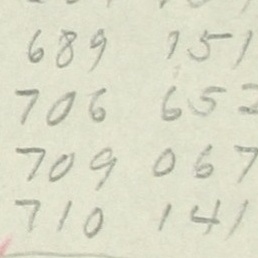 689 151
706 652
709 067
710 141